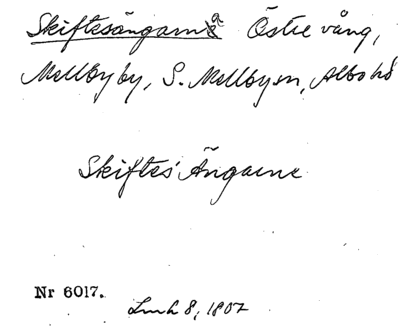 Skiftesängarna Östre vång,
Mellbyby, S. Mellby sn, Albo hd
Skiftes Ängarne
Nr 6017.
Lmh 8, 1807